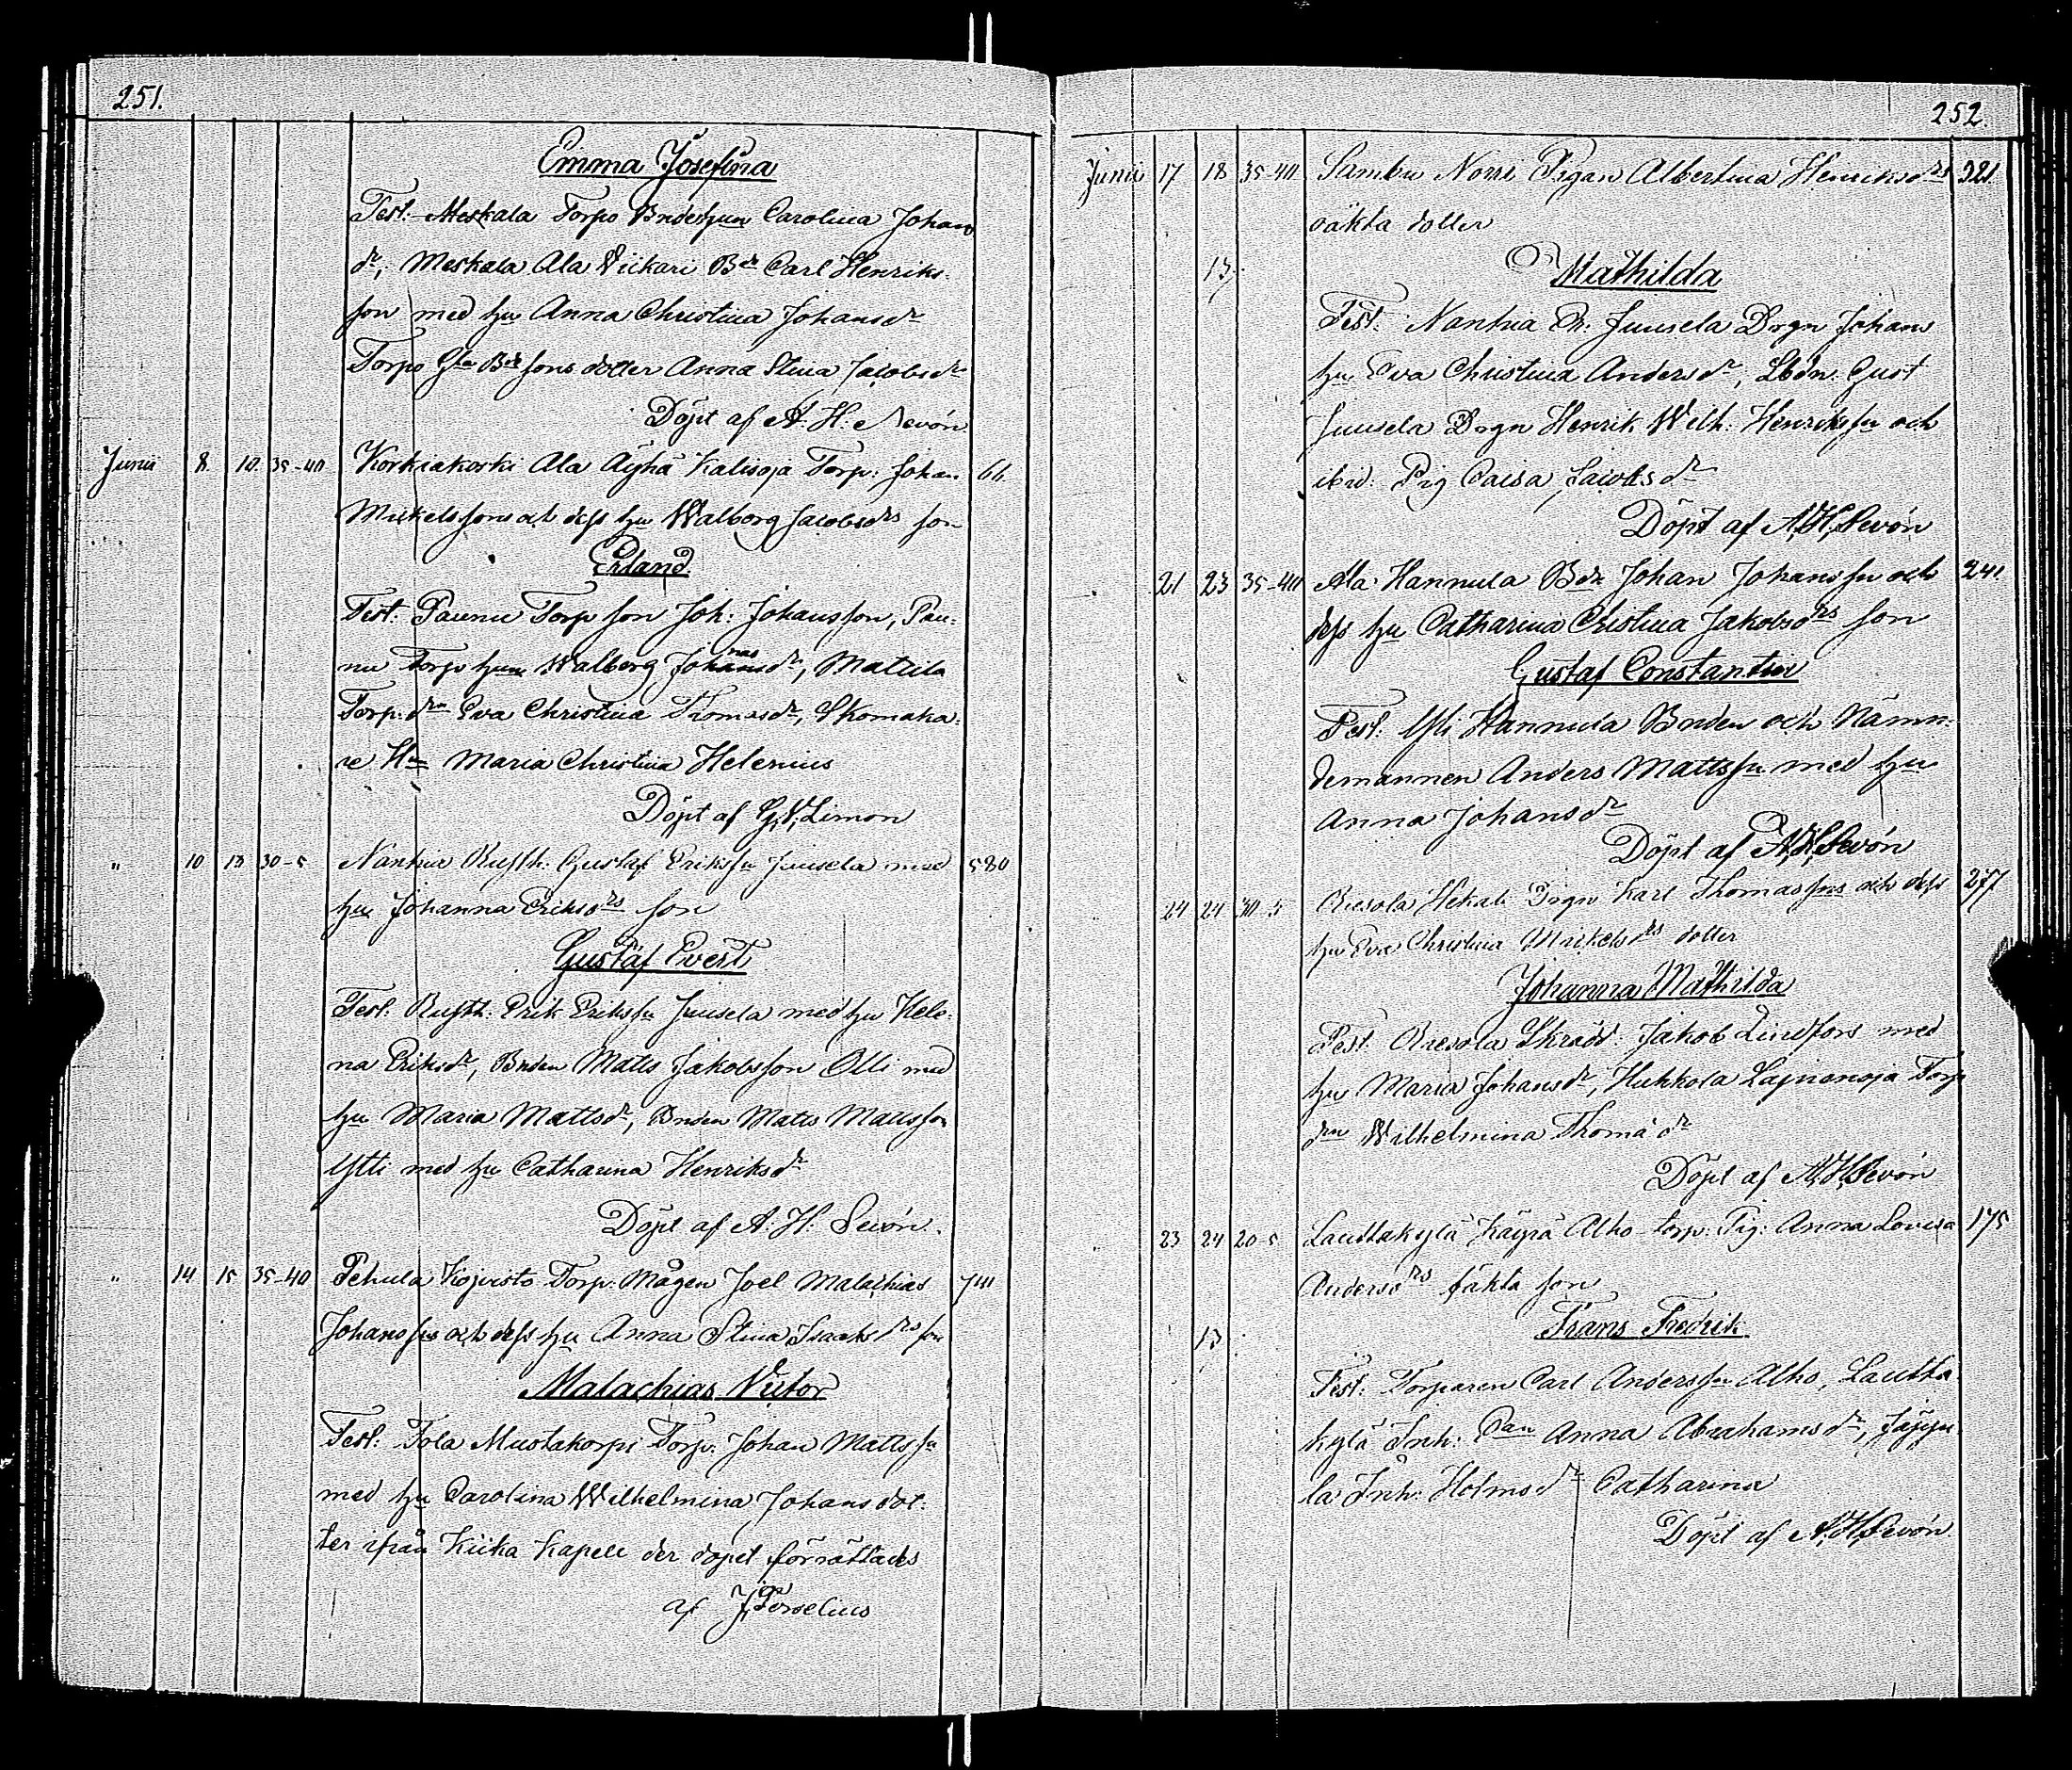 251.
Emma Josefina
Test: Meskala Torpo Bndeshun Carolina Johans
dr, Meskala Ala Viikari Bdr Carl Henriks
son med hu Anna Christina Johansdr
Torpo Gla Bdr sons dotter Anna Stina Jacobsdr
Döpt af A. H. Sevón
Junii 8. 10. 35-40 Korkiakoski Ala Äyhä Kalisoja Torp: Johan 66.
Mickelssons och dess hu Walborg Jacobsdrs son
Erland
Test: Paunu Torp son Joh: Johansson, Pau-
nu Torp hun Walborg Johansdr, Matula
Torp: drn Eva Christina Thomasdr, Skomaka-
re Hun Maria Christina Helenius
Döpt af G. V. Limon
" 10 13 30-5 Nanhia Rusth: Gustaf Erikssn Juusela med 580
hu Johanna Eriksdrs son
Gustaf Evert
Test: Rusth: Erik Erikssn Juusela med hu Hele-
na Eriksdr, Bnden Matts Jakobsson Olli med
hu Maria Mattsdr, Bnden Matts Mattsson
Ylli med hu Catharina Henriksdr
Döpt af A. H. Sevón.
" 14 15 35-40 Pehula Kojvisto Torp: Mågen Joel Malachias 741
Johanssns och dess hu Anna Stina Isaaksdrs son
Malachias Victor
Test: Tola Mustakorpi Torp: Johan Mattssn
med hu Carolina Wilhelmina Johansdot-
ter ifrån Kiika Kapell der dopet förrättades
af J. Perselius
252.
Junii 17 18 35-40 Sambu Norri Pigan Albertina Henriksdrs 321.
oäkta dotter
13. Mathilda
Test: Nanhia Juusela Drgn Johans
hu Eva Christina Andersdr, Gust
Juusela Drgn Henrik Wilh: Henrikssn och
ibid: Pig Caisa Jacobsdr
Döpt af A. H. Sevón
21 23 35-40 Ala Hannula Bdr Johan Johanssn och 241
dess hu Catharina Christina Jakobsdrs son
Gustaf Constantin
Test: Yli Hannula Bnden och Nämn-
demannen Anders Mattssn med hu
Anna Johansdr
Döpt af A. H. Sevón
24 24 30-5 Riesola Hekali Drgn Karl Thomassns och dess 277
hu Eva Christina Mickelsdrs dotter
Johanna Mathilda
Test: Riesola Skrädd: Jakob Lindfors med
hu Maria Johansdr, Huhkola Lajnanoja Torp
drn Wilhelmina Thomadr
Döpt af A. H. Sevón
23 24 20-5 Lauttakylä Käyrä Alho torp: Pig: Anna Lovisa 175
Andersdrs oäkta son
13 Frans Fredrik
Test: Torparen Carl Anderssn Alho, Lautta
kylä Inh: Anna Abrahamsdr,
la Inh: Holmsdr Catharina
Döpt af A. H. Sevón